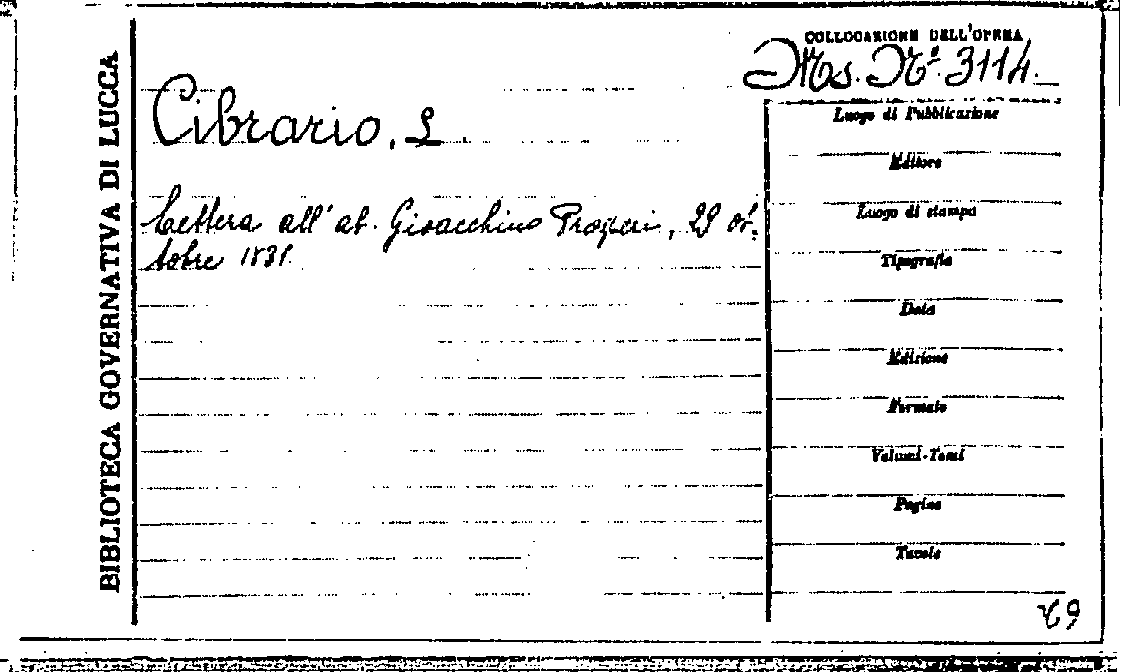 BIBLIOTECA GOVERNATIVA DI LUCCA
COLLOCAZIONE DELL'OPERA
Ms. N.° 3114.
Cibrario, L.
Lettera all'ab. Gioacchino Prosperi, 29 ot-
tobre
Luogo di Pubblicazione
Editore
Luogo di stampa
Tipografia
Data
Edizione
Formato
Volumi-Tomi
Pagine
Tavole